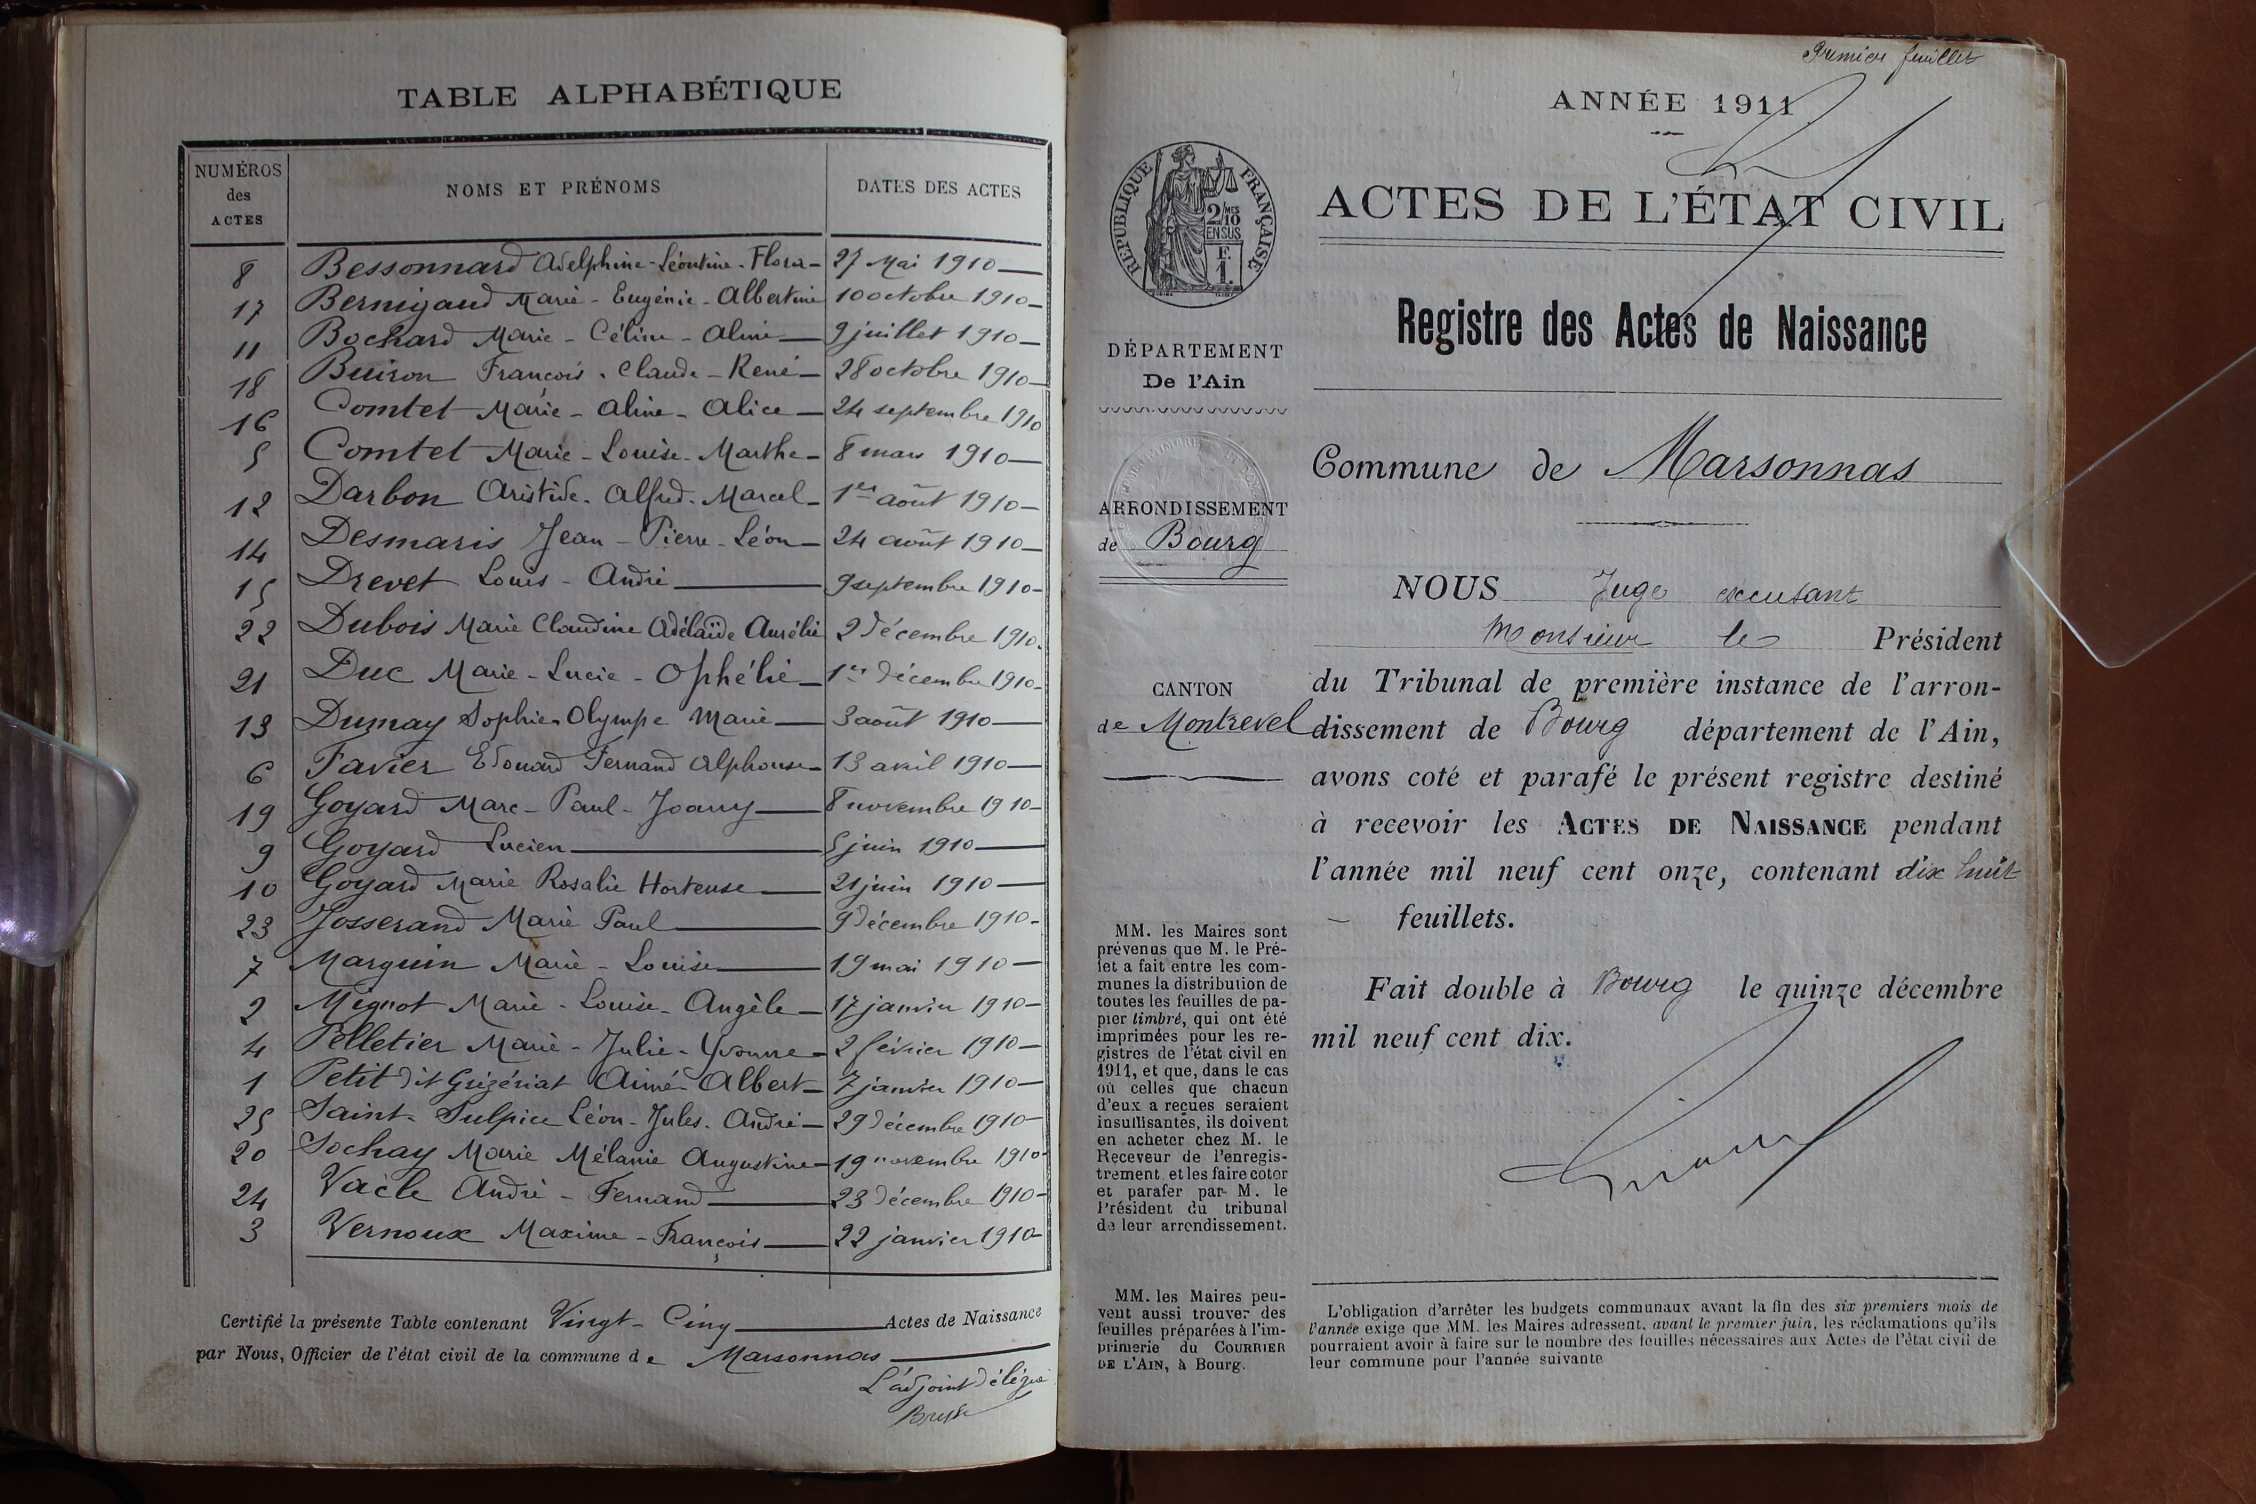 TABLE ALPHABÉTIQUE
NUMÉROS des ACTES NOMS ET PRÉNOMS DATES DES ACTES
8 Bessonnard Adelphine-Léontine-Flora 27 Mai 1910
17 Bernigaud Marie-Eugénie-Albertine 10 octobre 1910
11 Bochard Marie-Céline-Aline 9 juillet 1910
18 Buiron François-Claude-René 28 octobre 1910
16 Comtet Marie-Aline-Alice 24 septembre 1910
5 Comtet Marie-Louise-Marthe 8 mars 1910
12 Darbon Aristide-Alfred-Marcel 1er août 1910
14 Desmaris Jean-Pierre-Léon 24 août 1910
15 Drevet Louis-André 9 septembre 1910
22 Dubois Marie Claudine Adélaïde Aurélie 2 Décembre 1910
21 Duc Marie-Lucie-Ophélie 1er Décembre 1910
13 Dumay Sophie-Olympe Marie 3 août 1910
6 Favier Edouard Fernand Alphonse 13 avril 1910
19 Goyard Marc-Paul-Joanny 8 novembre 1910
9 Goyard Lucien 5 juin 1910
10 Goyard Marie Rosalie Hortense 21 juin 1910
23 Josserand Marie Paul 9 Décembre 1910
7 Marguin Marie-Louise 19 mai 1910
2 Mignot Marie-Louise-Angèle 17 janvier 1910
4 Pelletier Marie-Julie-Yvonne 2 février 1910
1 Petit dit Grézériat Aimé-Albert 7 janvier 1910
25 Saint-Sulpice Léon-Jules-André 29 Décembre 1910
20 Sochay Marie Mélanie Augustine 19 novembre 1910
24 Vacle André-Fernand 23 Décembre 1910
3 Vernoux Maxime-François 22 janvier 1910
Certifié la présente Table contenant Vingt-Cinq Actes de Naissance
par Nous, Officier de l'état civil de la commune de Marsonnas
L'adjoint délégué
Premier feuillet
ANNÉE 1911
ACTES DE L'ÉTAT CIVIL
Registre des Actes de Naissance
RÉPUBLIQUE FRANÇAISE
2/10 MES
EN SUS
F.
1.
DÉPARTEMENT
De l'Ain
ARRONDISSEMENT
de Bourg
CANTON
de Montrevel
MM. les Maires sont
prévenus que M. le Pré-
fet a fait entre les com-
munes la distribution de
toutes les feuilles de pa-
pier timbré, qui ont été
imprimées pour les re-
gistres de l'état civil en
1911, et que, dans le cas
où celles que chacun
d'eux a reçues seraient
insuffisantes, ils doivent
en acheter chez M. le
Receveur de l'enregis-
trement et les faire coter
et parafer par M. le
Président du tribunal
de leur arrondissement.
MM. les Maires peu-
vent aussi trouver des
feuilles préparées à l'im-
primerie du COURRIER
DE L'AIN, à Bourg.
Commune de Marsonnas
NOUS Juge excusant
Monsieur le Président
du Tribunal de première instance de l'arron-
dissement de Bourg département de l'Ain,
avons coté et parafé le présent registre destiné
à recevoir les ACTES DE NAISSANCE pendant
l'année mil neuf cent onze, contenant dix huit
feuillets.
Fait double à Bourg le quinze décembre
mil neuf cent dix.
L'obligation d'arrêter les budgets communaux avant la fin des six premiers mois de
l'année exige que MM. les Maires adressent, avant le premier juin, les réclamations qu'ils
pourraient avoir à faire sur le nombre des feuilles nécessaires aux Actes de l'état civil de
leur commune pour l'année suivante